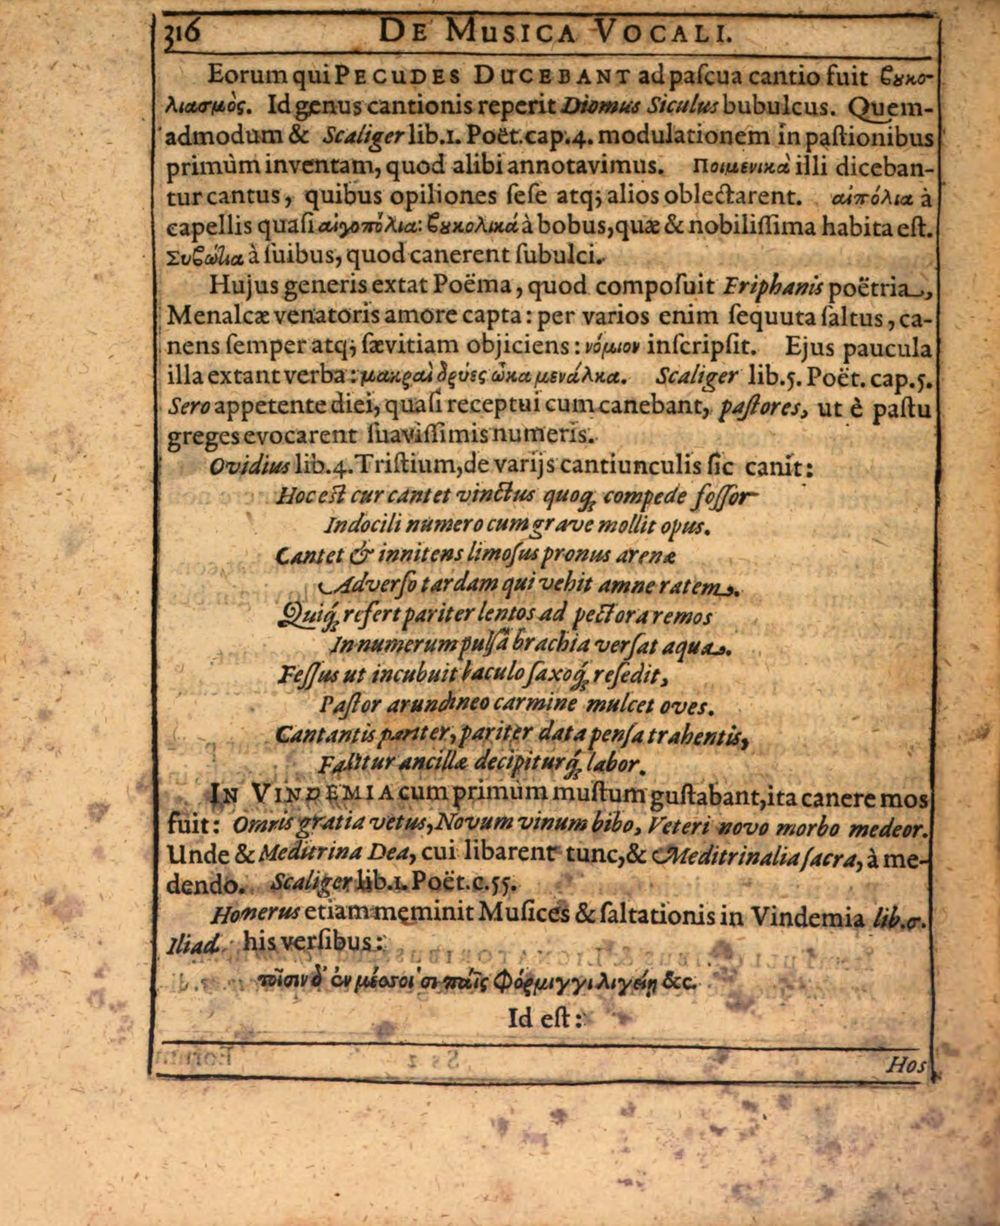 316 DE MUSICA VOCALI.
Eorum qui PECUDES DUCEBANT ad paſcua cantio fuit βουκο-
λιασμὸς. Id genus cantionis reperit Diomus Siculus bubulcus. Quem-
admodum & Scaliger lib.1. Poët.cap.4. modulationem in paſtionibus
primùm inventam, quod alibi annotavimus. Ποιμενικὰ illi diceban-
tur cantus, quibus opiliones ſeſe atq; alios oblectarent. αἰπόλια à
capellis quaſi αἰγοπόλια: βουκολικά à bobus, quæ & nobiliſſima habita eſt.
Συβώτια à ſuibus, quod canerent ſubulci.
Hujus generis extat Poëma, quod compoſuit Eriphanis poëtria,
Menalcæ venatoris amore capta: per varios enim ſequuta ſaltus, ca-
nens ſemper atq; ſævitiam objiciens: νόμιον inſcripſit. Ejus paucula
illa extant verba: μακραὶ δρύες ὦκα μενάλκα. Scaliger lib.5. Poët. cap.5.
Sero appetente diei, quaſi receptui cum canebant, paſtores, ut è paſtu
greges evocarent ſuaviſſimis numeris.
Ovidius lib.4. Triſtium, de varijs cantiunculis ſic canit:
Hoc eſt cur cantet vinctus quoq; compede foſſor
Indocili numero cum grave mollit opus.
Cantet & innitens limoſus pronus arenæ
Adverſo tardam qui vehit amne ratem.
Quiq; refert pariter lentos ad pectora remos
In numerum pulſâ brachia verſat aqua.
Feſſus ut incubuit baculo ſaxoq; reſedit,
Paſtor arundineo carmine mulcet oves.
Cantantis pariter, pariter data penſa trahentis,
Fallitur ancillæ decipiturq; labor.
IN VINDEMIA cum primùm muſtum guſtabant, ita canere mos
fuit: Omnis gratia vetus, Novum vinum bibo, Veteri novo morbo medeor.
Unde & Meditrina Dea, cui libarent tunc, & Meditrinalia ſacra, à me-
dendo. Scaliger lib.1. Poët.c.55.
Homerus etiam meminit Muſices & ſaltationis in Vindemia lib.σ.
Iliad. his verſibus:
τοῖσιν δ' ἐν μέσσοισι παῖς Φόρμιγγι λιγείῃ &c.
Id eſt:
Hos